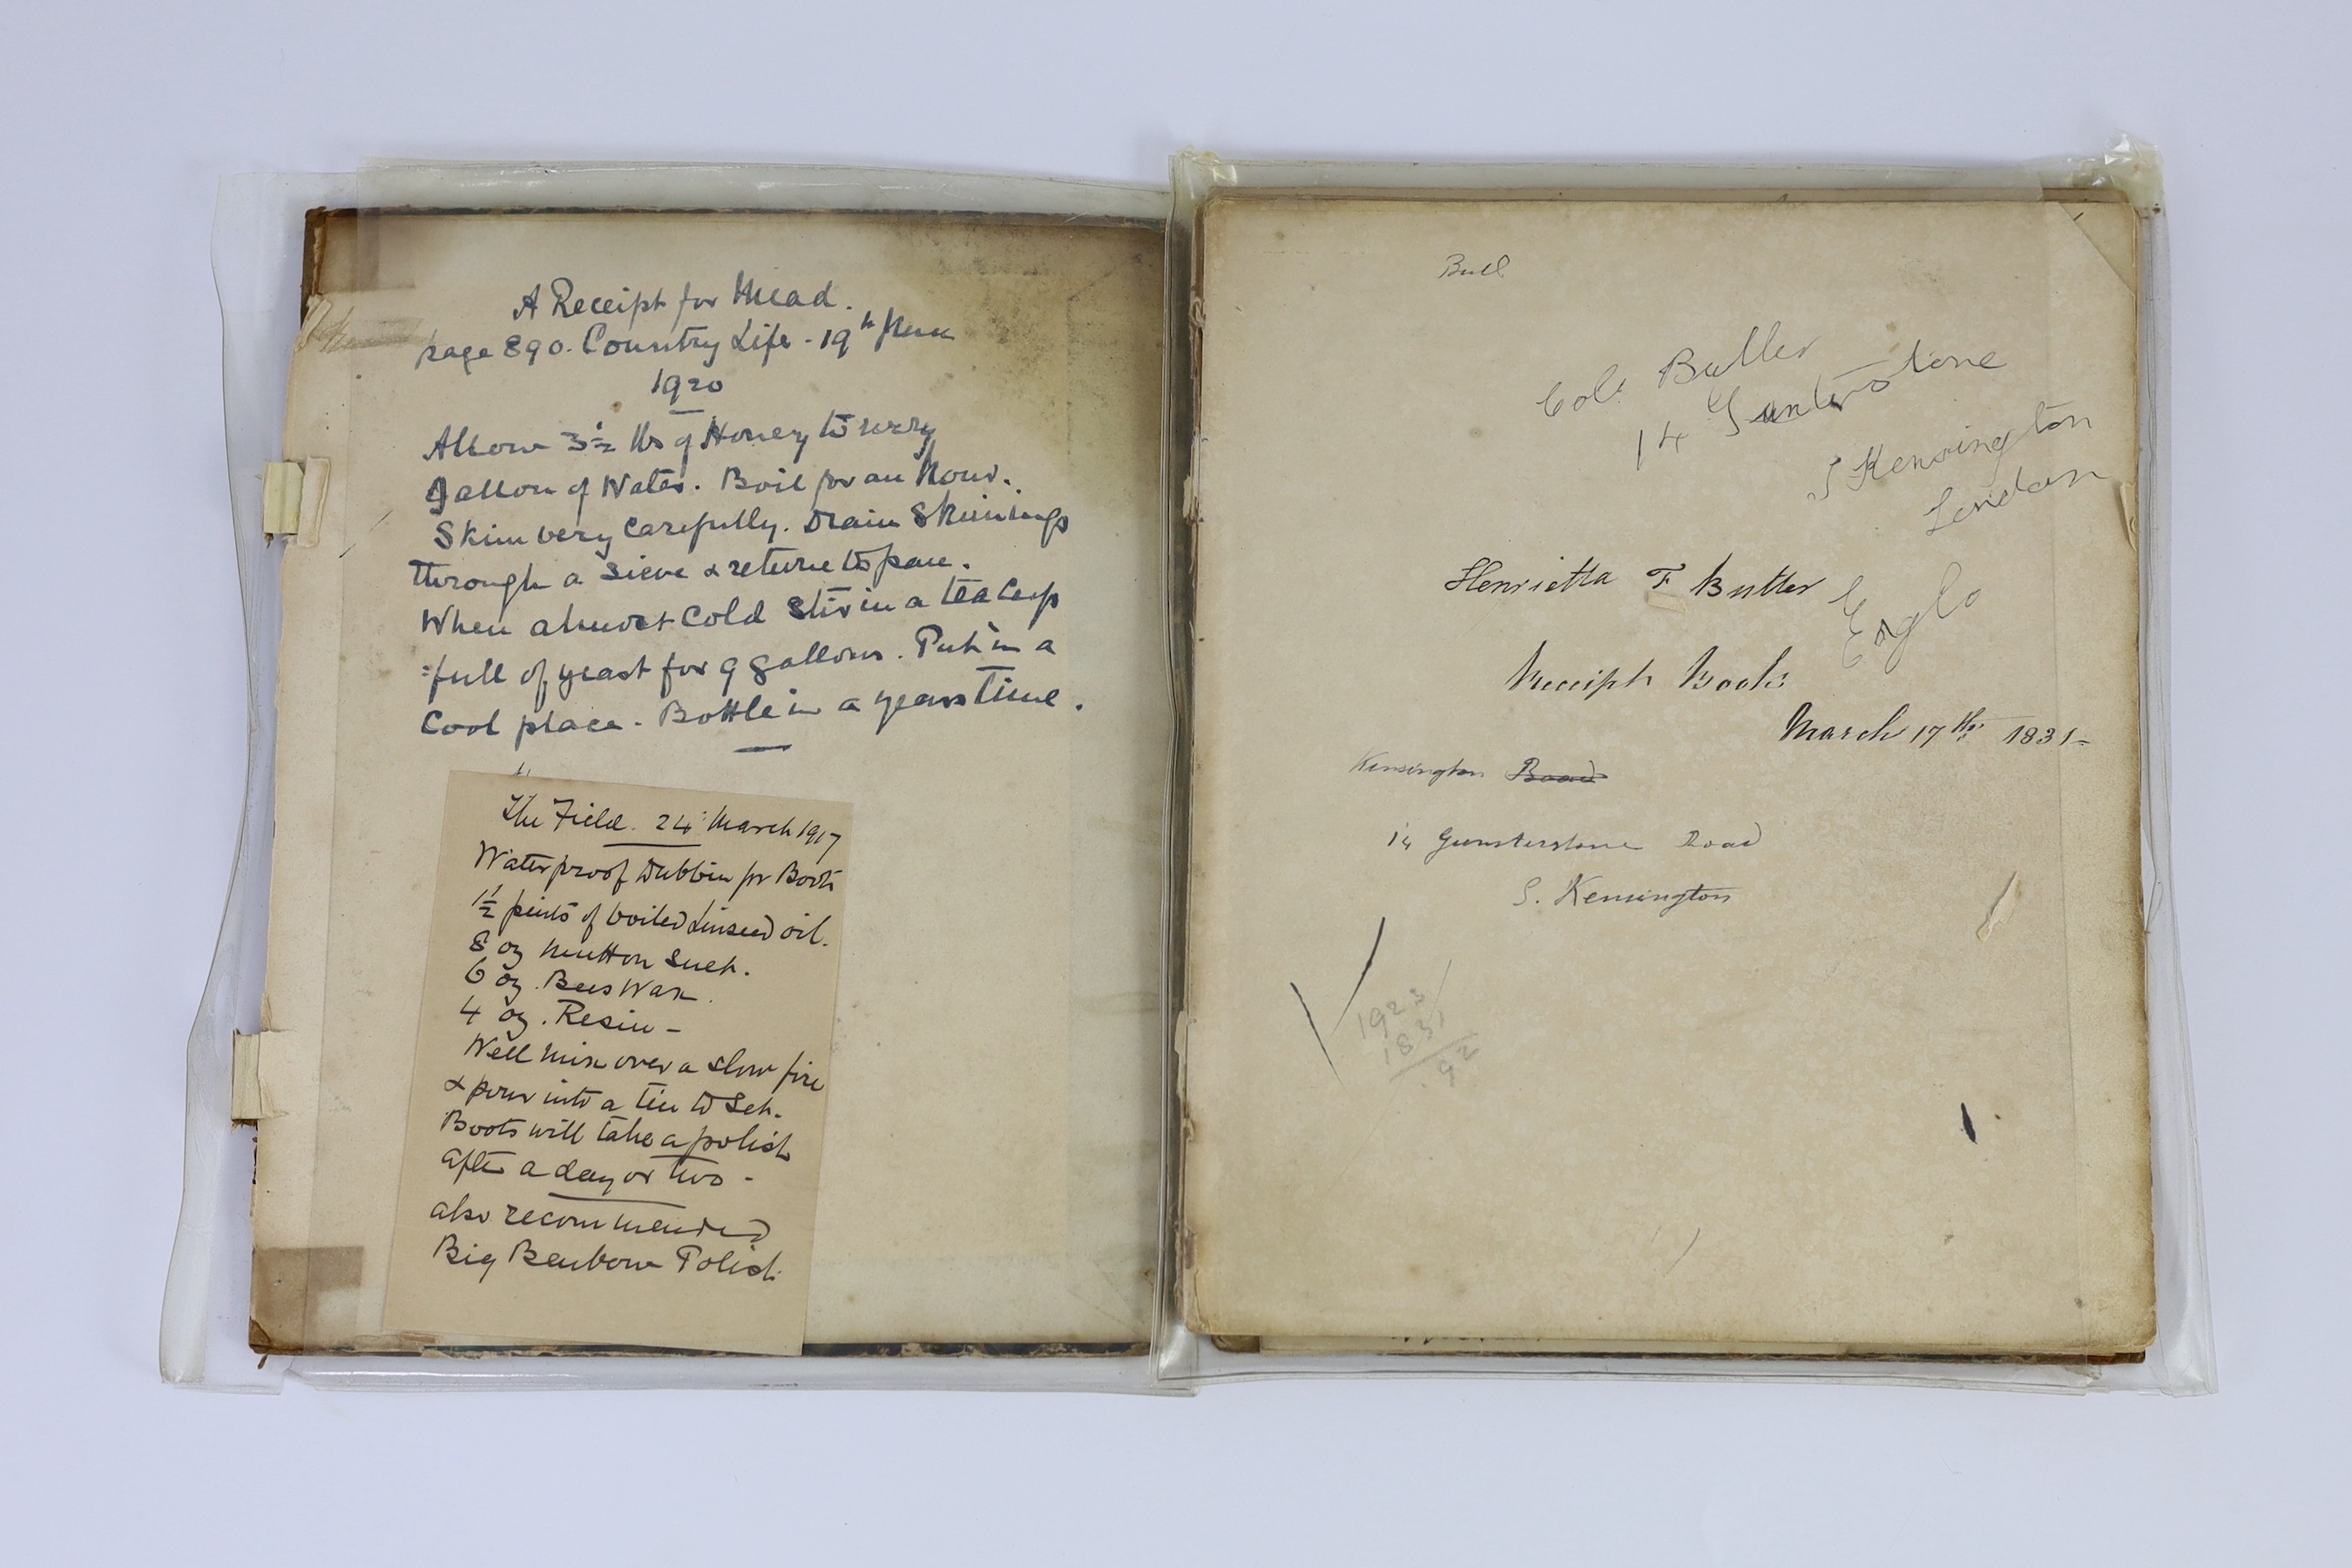 A Receipt for Mead.
page 890. Country Life. 19th June
1920
Allow 3½ lbs of Honey to every
gallon of Water. Boil for an hour.
Skim very carefully. Drain Skimmings
through a sieve & return to pan.
When almost Cold Stir in a tea Cup
=full of yeast for 9 gallons. Put in a
Cool place. Bottle in a years time.
The Field. 24 March 1917
Waterproof Dubbin for Boots
1½ pints of boiled Linseed oil.
8 oz mutton Suet.
6 oz. Bees Wax.
4 oz. Resin -
Well mix over a slow fire
& pour into a tin to Set.
Boots will take a polish
after a day or two -
also recommended
Big Benbow Polish.
Bull
Col. Butler
14 Gunterstone
S Kensington
London
Henrietta F Butler
Receipt Book
March 17th 1831-
Kensington Road
14 Gunterstone Road
S. Kensington
1923
1831
92